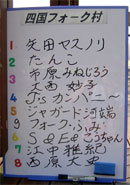 四国フォーク村
1 矢田ヤスノリ
2 たんこ
3 市原みねじろう
4 大西妙子
5 J'sカンパニー
6 シャガード河端
フォークふみい
7 S&Eこうちゃん
辻本雅紀
8 西原大史